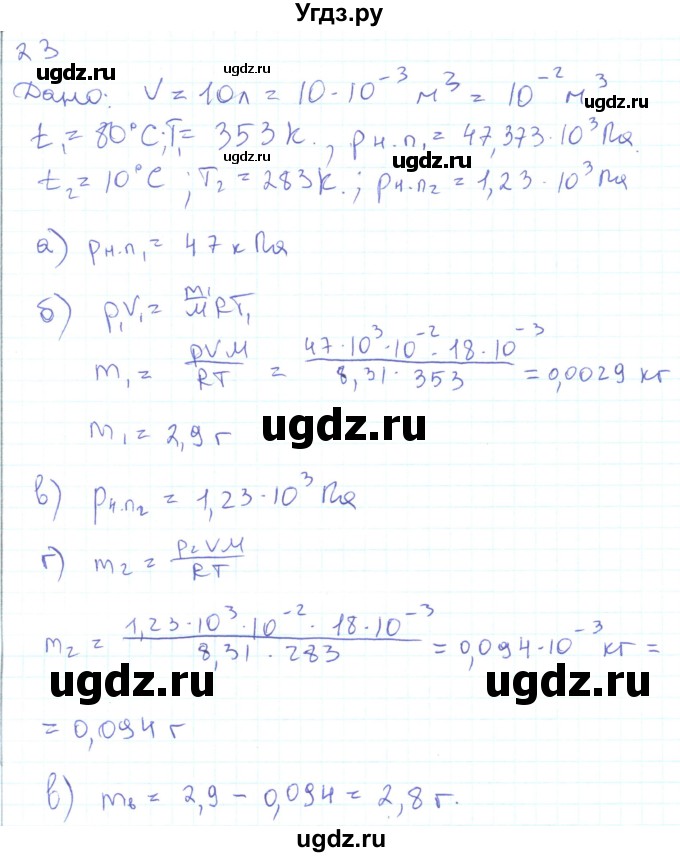 Угдз.ру
23
Дано: V = 10л = 10·10⁻³ м³ = 10⁻² м³
ugdz.ru
t₁ = 80°C; T₁ = 353к., pн.п₁ = 47,373·10³ Па
ugdz.ru
t₂ = 10°C ; T₂ = 283к. ; pн.п₂ = 1,23·10³ Па
ugdz.ru
а) pн.п₁ = 47 кПа
ugdz.ru
б) p₁V₁ = m₁/M RT₁
m₁ = pVM/RT = 47·10³·10⁻²·18·10⁻³ / 8,31·353 = 0,0029 кг
m₁ = 2,9 г
ugdz.ru
в) pн.п₂ = 1,23·10³ Па
г) m₂ = p₂VM/RT
m₂ = 1,23·10³·10⁻²·18·10⁻³ / 8,31·283 = 0,094·10⁻³ кг =
ugdz.ru ugdz.ru ugdz.ru
= 0,094 г
в) mв = 2,9 – 0,094 = 2,8 г.
ugdz.ru